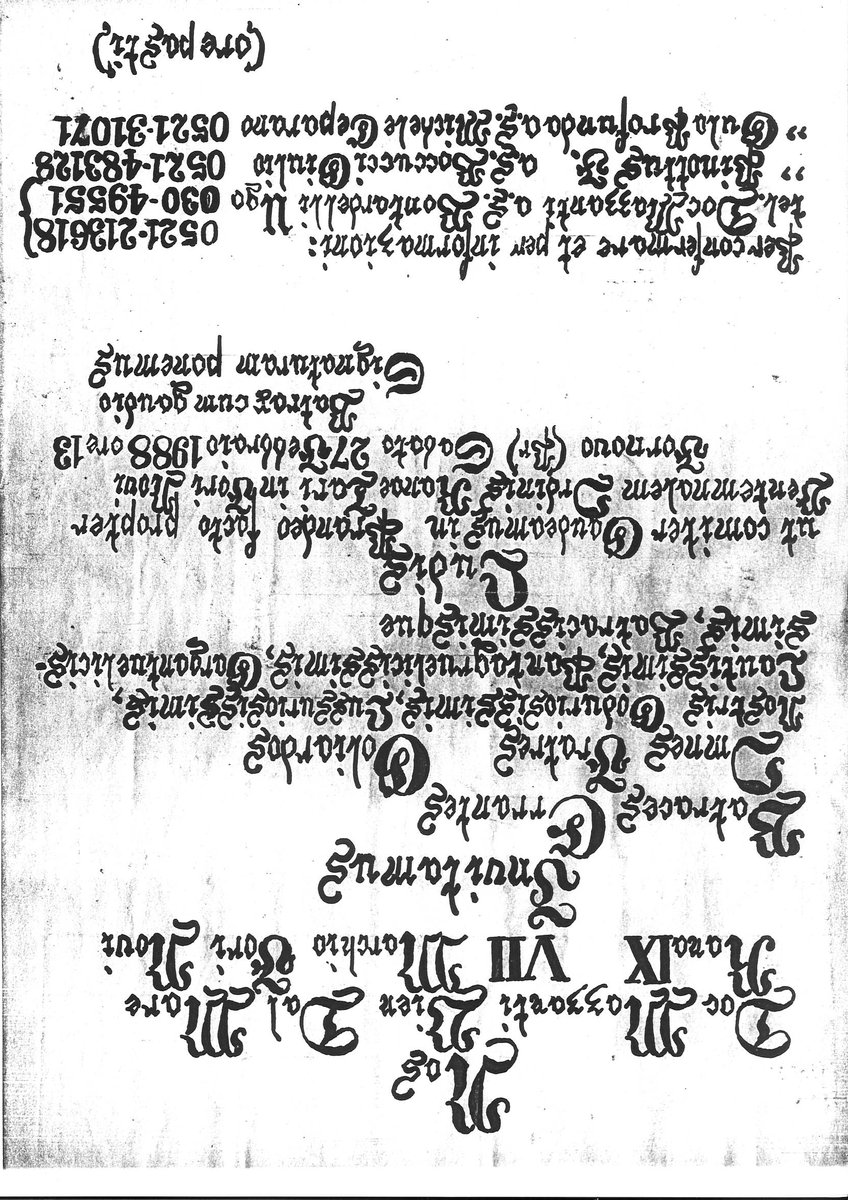 Nos
Doc Mazzanti Bien Dal Mare
Rana IX VII Marchio Fori Noui
Inuitamus
Batraces Errantes
Omnes Fratres Goliardos
Nostris Goduriosissimis, Lussuriosissimis,
Lautissimis, Pantagruelicissimis, Gargantuelicis-
simis, Batracissimisque
Ludis
ut comiter Gaudeamus in Prandeo facto propter
Ventennalem Ordinis Ranae Lari in Fori Noui
Fornovo (Pr) Sabato 27 Febbraio 1988 ore 13
Batrax cum gaudio
Signaturam ponemus
Per confermare et per informazioni:
0521-213618
tel. Doc Mazzanti a.g. Bontardelli Ugo 030-49551
" Binottus F. a.g. Boccucci Giulio 0521-483128
" Gula Profunda a.g. Michele Ceparano 0521-31071
(ore pasti)